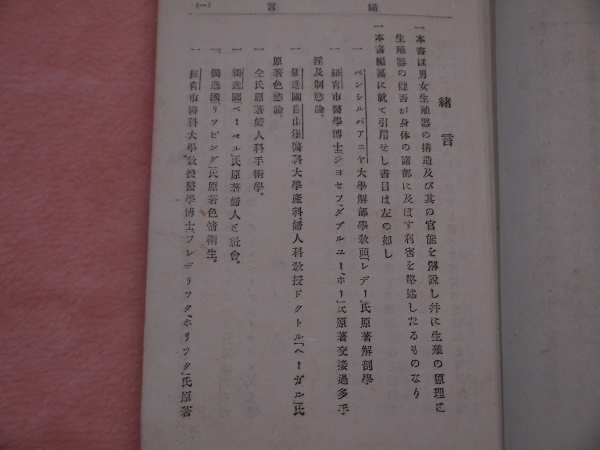 緒言
(一)
緒言
一本書は男女生殖器の構造及び其の官能を解説し幷に生殖の原理と
生殖器の健否が身体の諸部に及ぼす利害を略述したるものなり
一本書編纂に就て引用せし書目は左の如し
一ペンシルバアニヤ大學解部學敎頭「レデー」氏原著解剖學
一紐育市醫學博士「ジヨセフ、ダブルユー、ホー」氏原著交接過多手
淫及制慾論。
一獨逸國自由堡醫科大學產科婦人科敎授ドクトル「ヘーガル」氏
原著色慾論。
一仝氏原著婦人科手術學。
一獨逸國「ベーベル」氏原著婦人と社會。
一獨逸國「リツビング」氏原著色情衛生。
一紐育市醫科大學敎授醫學博士「フレデリツク、ホリツク」氏原著